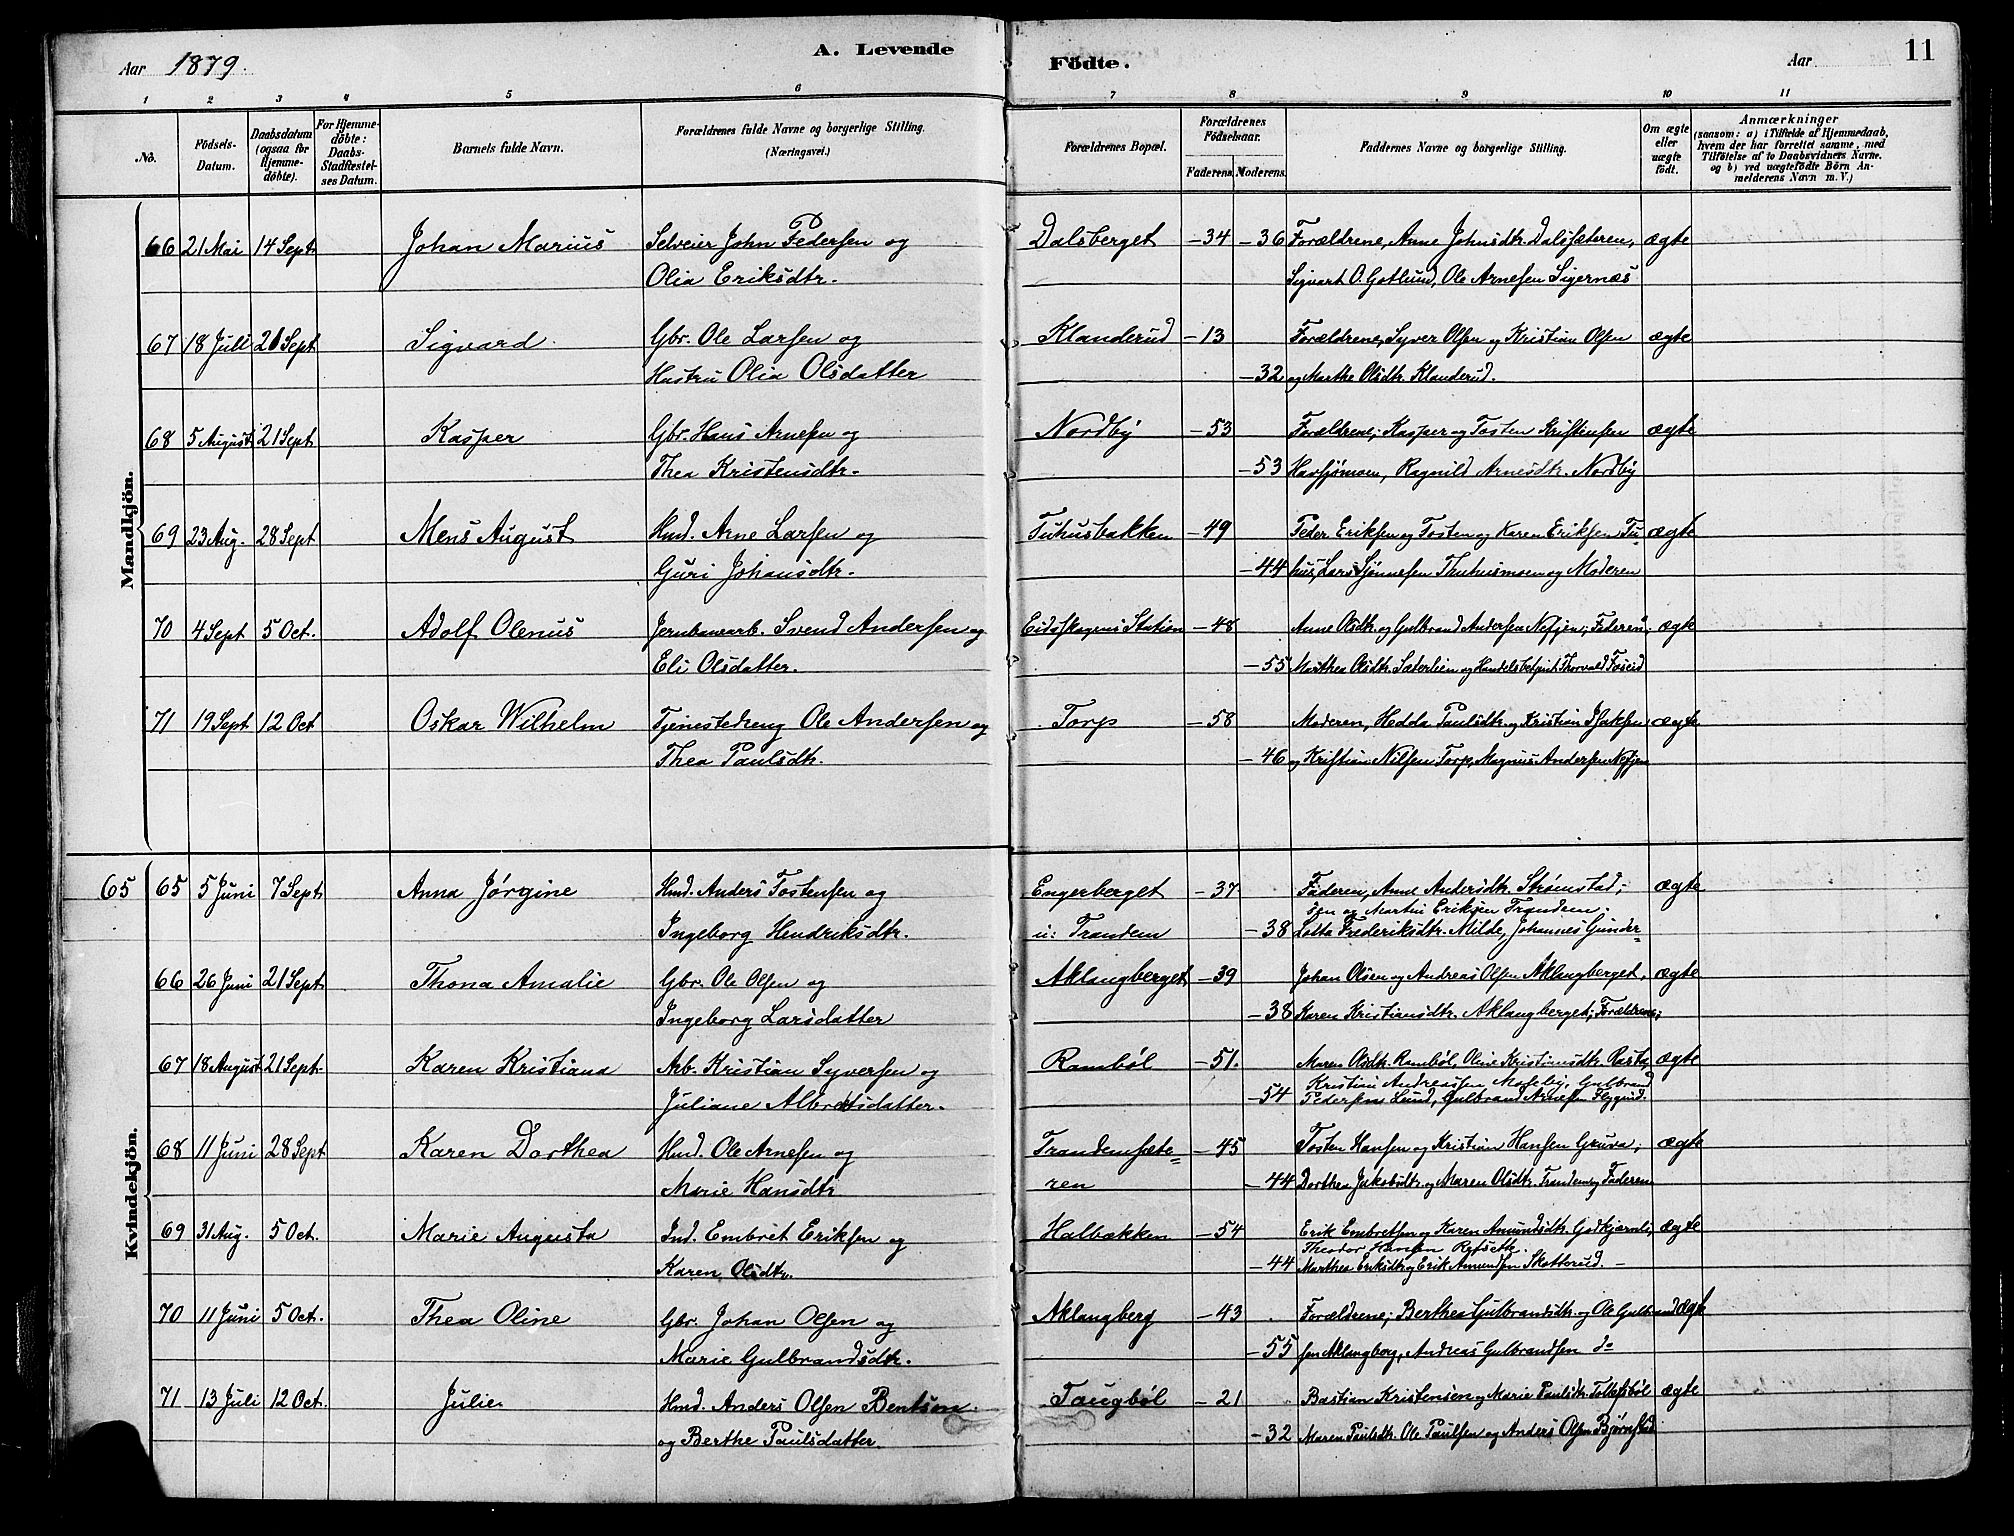 Aar 1879.
A. Levende
Födte.
Aar
11
1 2 3 4 5 6 7 8 9 10 11
No.
Födsels-Datum.
Daabsdatum (ogsaa för Hjemme-döbte).
For Hjemme-döbte: Daabs-Stadfæstel-ses Datum.
Barnets fulde Navn.
Forældrenes fulde Navne og borgerlige Stilling. (Næringsvei.)
Forældrenes Bopæl.
Forældrenes Födselsaar. Faderens. Moderens.
Faddernes Navne og borgerlige Stilling.
Om ægte eller uægte födt.
Anmærkninger (saasom: a) i Tilfælde af Hjemmedaab, hvem der har forrettet samme, med Tilföielse af to Daabsvidners Navne. og b) ved uægtefödte Börn Anmelderens Navn m. V.)
Mandkjön.
66 21 Mai 14 Sept. Johan Marius Selveier John Pedersen og Dalsberget – 34 – 36 Forældrene, Anne Johnsdtr. Dalsæteren, ægte
Olia Eriksdtr. Sigvart O. Gotlund, Ole Arnesen Sigernæs
67 18 Juli 21 Sept Sigvard Gbr. Ole Larsen og Klanderud – 13 Forældrene, Syver Olsen og Kristian Olsen ægte
Hustru Olia Olsdatter – 32 og Marthe Olsdtr. Klanderud.
68 5 August 21 Sept Kasper Gbr. Hans Arnesen og Nordby – 53 Forældrene, Kasper og Tosten Kristensen ægte
Thea Kristensdtr. – 53 Havsjømoen, Ragnild Arnesdtr. Nordby
69 23 Aug. 28 Sept Mens August Hmd. Arne Larsen og Tuhusbakken – 49 Peder Eriksen og Tosten og Karen Eriksen Tu- ægte
Guri Johansdtr. – 44 hus, Lars Sjønnesen Thuhusmoen og Moderen
70 4 Sept 5 Oct. Adolf Olenus Jernbanearb. Svend Andersen og Eidsskogens Station – 48 Anne Olsdtr. og Gulbrand Andersen Nesjen; Faderen; ægte
Eli Olsdatter. – 55 Marthea Olsdtr. Sæterlien og Handelsbetjent Thorvald Foseid
71 19 Sept 12 Oct Oskar Wilhelm Tjenestedreng Ole Andersen og Torp – 58 Moderen, Hedda Paulsdtr. og Kristian Isaksen ægte
Thea Paulsdtr. – 46 og Kristian Nilsen Torp, Magnus Andersen Nesjen
Kvindekjön.
65 65 5 Juni 7 Sept. Anna Jørgine Hmd. Anders Tostensen og Engerberget – 37 Faderen, Anne Andersdtr. Strømstad, ægte
sen og Martin Eriksen Trandem.
Ingeborg Hendriksdtr. u: Trandem – 38 Lotta Frederiksdtr. Milde, Johannes Gunder=
66 26 Juni 21 Sept Thona Amalie Gbr. Ole Olsen og Aklangberget – 39 Johan Olsen og Andreas Olsen Aklangberget, ægte
Ingeborg Larsdatter – 38 Karen Kristiansdtr. Aklangberget; Forældrene;
67 18 August 21 Sept. Karen Kristiana Arb. Kristian Syversen og Rambøl – 51. Maren Olsdtr. Rambøl, Oline Kristiansdtr. Rasta, ægte
Kristian Andreassen Moseby, Gulbrand
Juliane Albretsdatter. – 54 Pedersen Lund, Gulbrand Arnesen Flygind.
68 11 Juni 28 Sept Karen Dorthea Hmd. Ole Arnesen og Trandemsæte= – 45 Tosten Hansen og Kristian Hansen Gruva; ægte
Marie Hansdtr ren – 44 Dorthea Jakobsdtr. og Maren Olsdtr. Trandem og Faderen
69 31 Aug. 5 Oct. Marie Augusta Ind. Embret Eriksen og Halbækken – 54 Erik Embretsen og Karen Amundsdtr. Godkjærnli, ægte
Theodor Hansen
Karen Olsdtr. – 44 Marthea Eriksdtr. og Erik Amundsen Skotterud. –
70 11 Juni 5 Oct. Thea Oline Gbr. Johan Olsen og Aklangberg – 43 Forældrene; Berthea Gulbrandsdtr. og Ole Gulbrand ægte
Marie Gulbrandsdtr. – 55 sen Aklangberg, Andreas Gulbrandsen do
71 13 Juli 12 Oct. Julie Hmd. Anders Olsen Bentsen Taugbøl – 21 Bastian Kristensen og Marie Paulsdtr. Tollefsbøl ægte
og Berthe Paulsdatter. – 32 Maren Paulsdtr. Ole Paulsen og Anders Olsen Bjørnstad